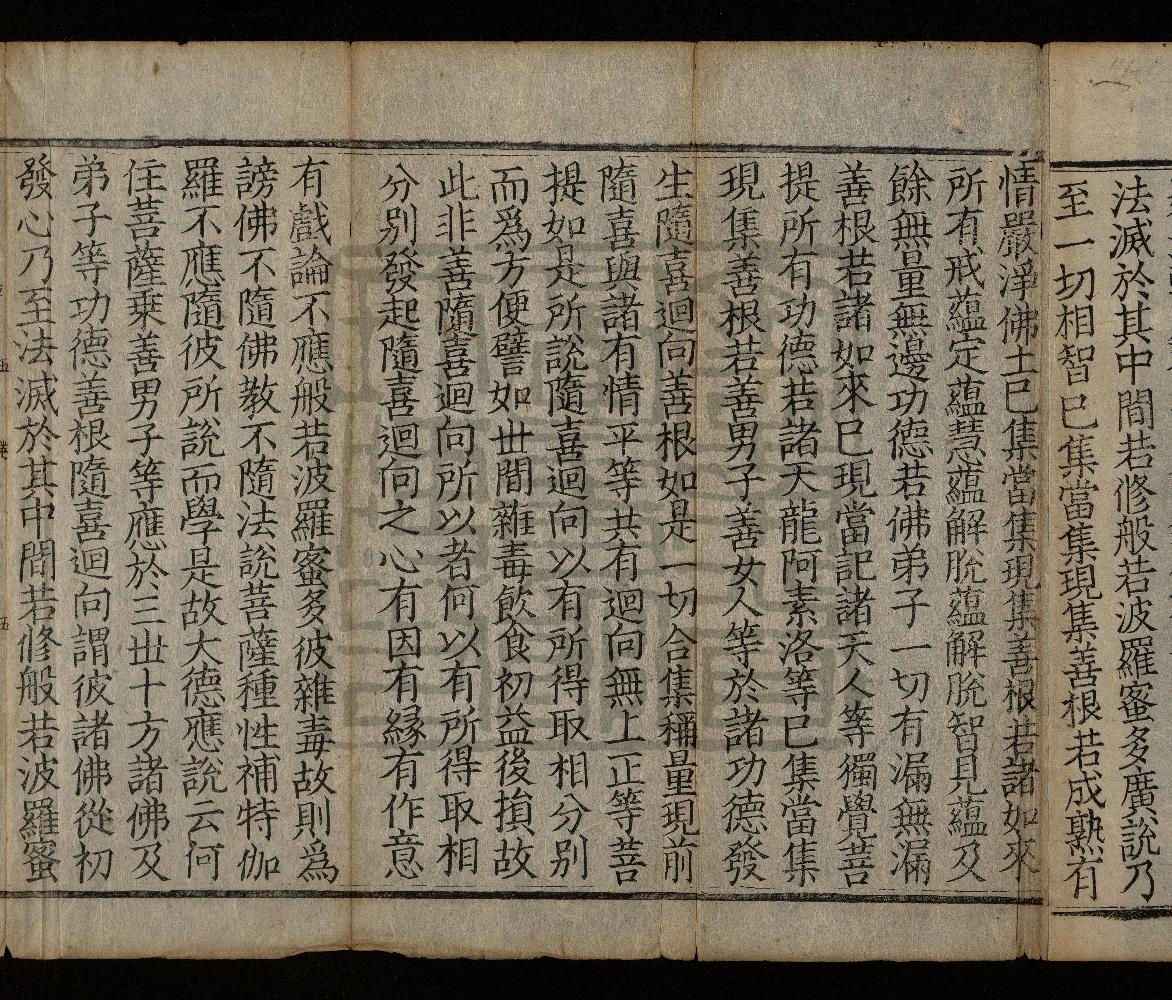 法滅於其中間若修般若波羅蜜多廣說乃
至一切相智已集當集現集善根若成熟有
情嚴淨佛土已集當集現集善根若諸如來
所有戒蘊定蘊慧蘊解脫蘊解脫智見蘊及
餘無量無邊功德若佛弟子一切有漏無漏
善根若諸如來已現當記諸天人等獨覺菩
提所有功德若諸天龍阿素洛等已集當集
現集善根若善男子善女人等於諸功德發
生隨喜迴向善根如是一切合集稱量現前
隨喜與諸有情平等共有迴向無上正等菩
提如是所說隨喜迴向以有所得取相分別
而爲方便譬如世間雜毒飲食初益後損故
此非善隨喜迴向所以者何以有所得取相
分別發起隨喜迴向之心有因有緣有作意
有戲論不應般若波羅蜜多彼雜毒故則爲
謗佛不隨佛教不隨法說菩薩種性補特伽
羅不應隨彼所說而學是故大德應說云何
住菩薩乘善男子等應於三世十方諸佛及
弟子等功德善根隨喜迴向謂彼諸佛從初
發心乃至法滅於其中間若修般若波羅蜜